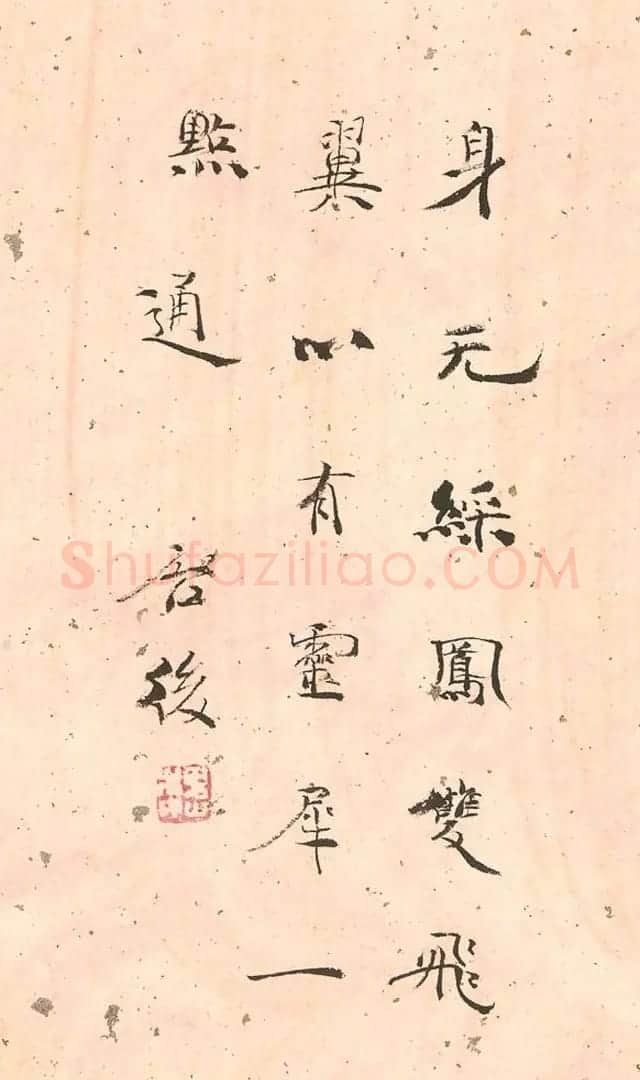 身无綵鳳雙飛
翼心有靈犀一
點通
後
Shufaziliao.COM